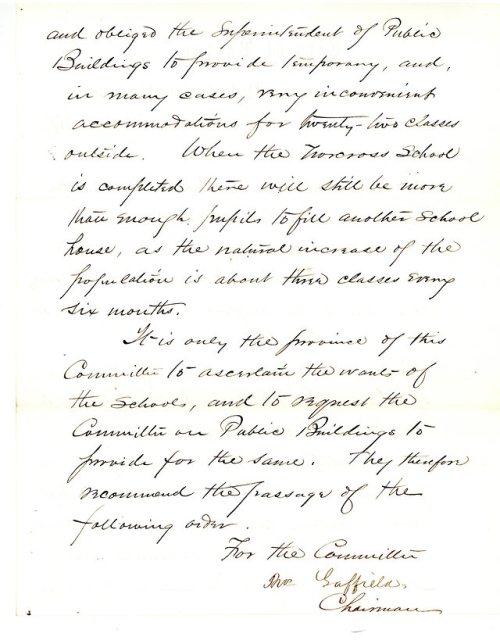 and obliged the Superintendent of Public
Buildings to provide temporary, and,
in many cases, very inconvenient
accommodations for twenty-two classes
outside. When the Norcross School
is completed there will still be more
than enough pupils to fill another School
house, as the natural increase of the
population is about three classes every
six months.
It is only the province of this
Committee to ascertain the wants of
the Schools, and to request the
Committee on Public Buildings to
provide for the same. They therefore
recommend the passage of the
following order.
For the Committee
Gaffield,
Chairman